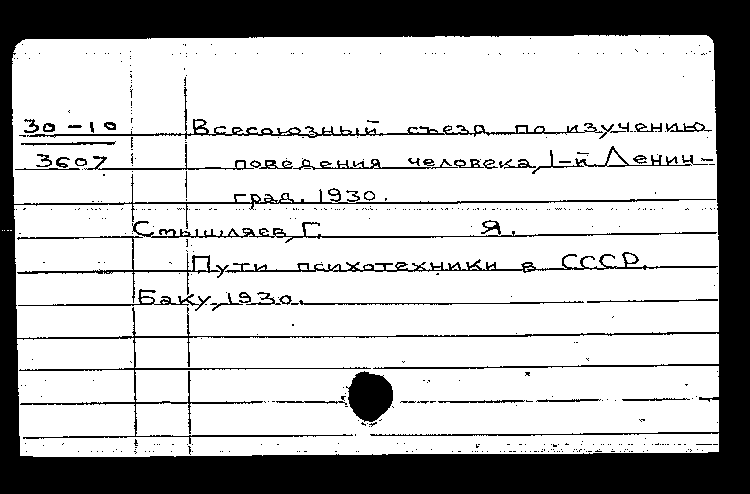 30-10 Всесоюзный съезд по изучению
3607 поведения человека, I-й Ленин-
град. 1930.
Смышляев, Г. Я.
Пути психотехники в СССР.
Баку, 1930.